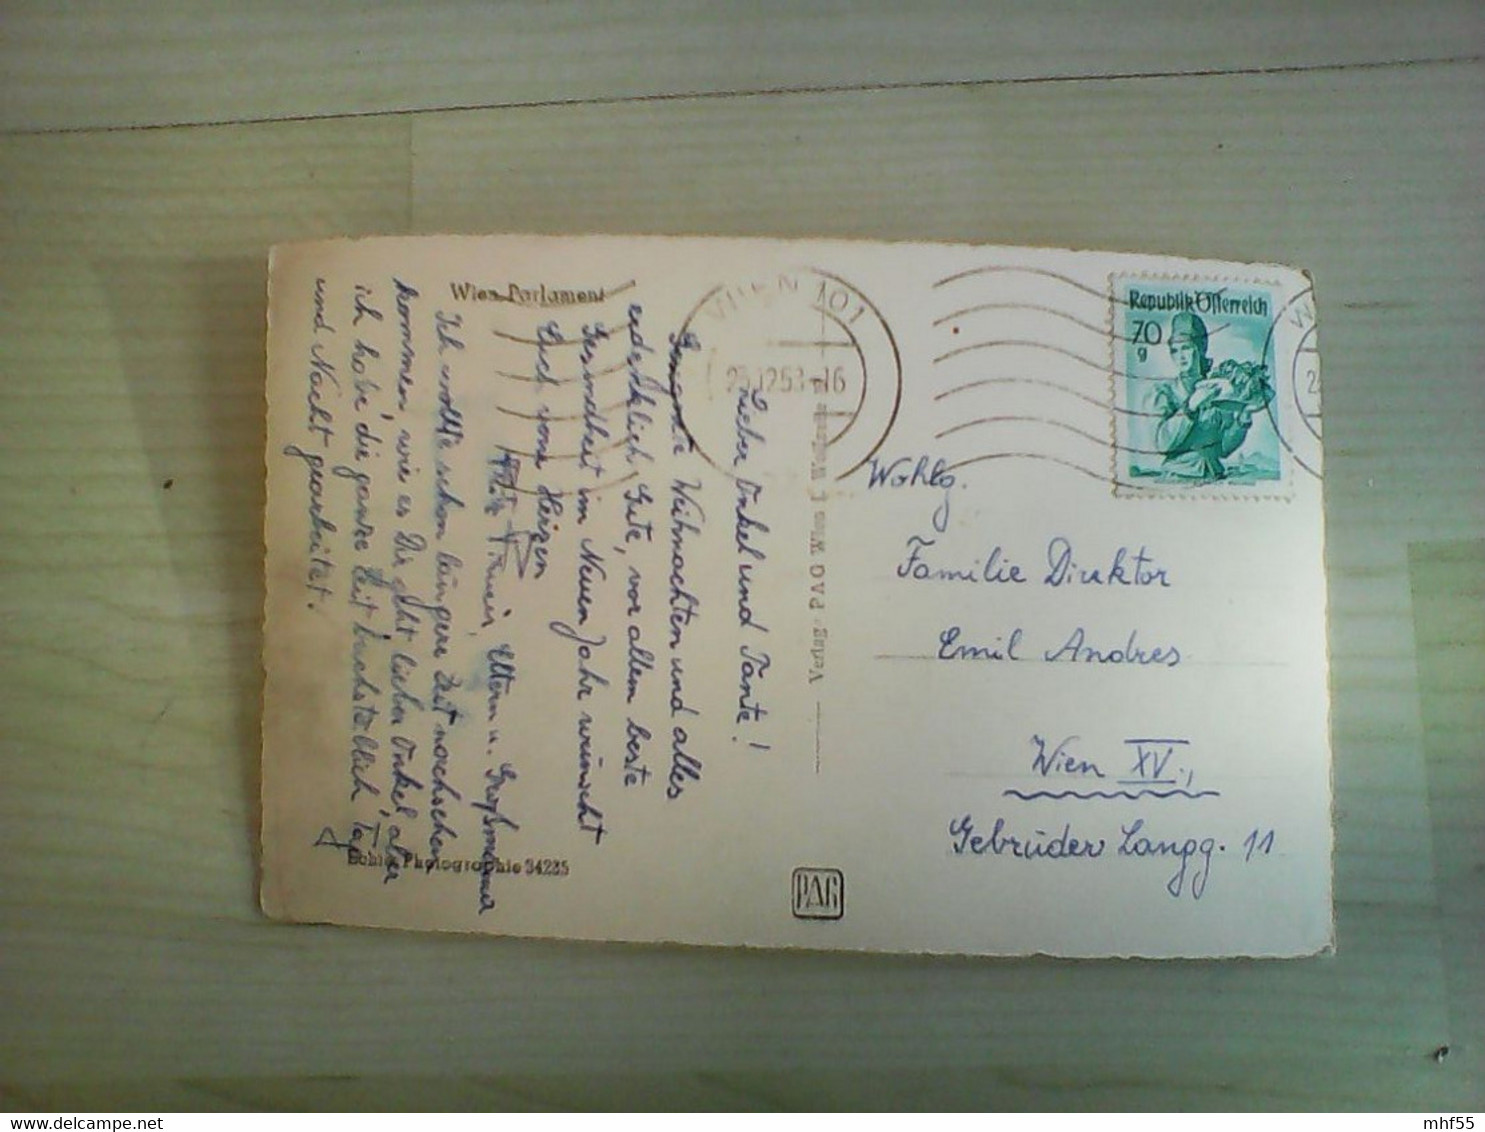 Wien Parlament
WIEN 101
23.12.53-16
Republik Österreich
70
g
Lieber Onkel und Tante!
Gesegnete Weihnachten und alles
erdenklich Gute, vor allem beste
Gesundheit im Neuen Jahr wünscht
Euch vom Herzen
Eltern u. Großmama
Ich wollte schon längere Zeit nachsehen
kommen wie es Dir geht lieber Onkel, aber
ich habe die ganze Zeit buchstäblich Tag
und Nacht gearbeitet.
Echte Photographie 34225
Verlag PAG Wien
PAG
Wohlg.
Familie Direktor
Emil Andres
Wien XV.,
Gebrüder Langg. 11
mhf55